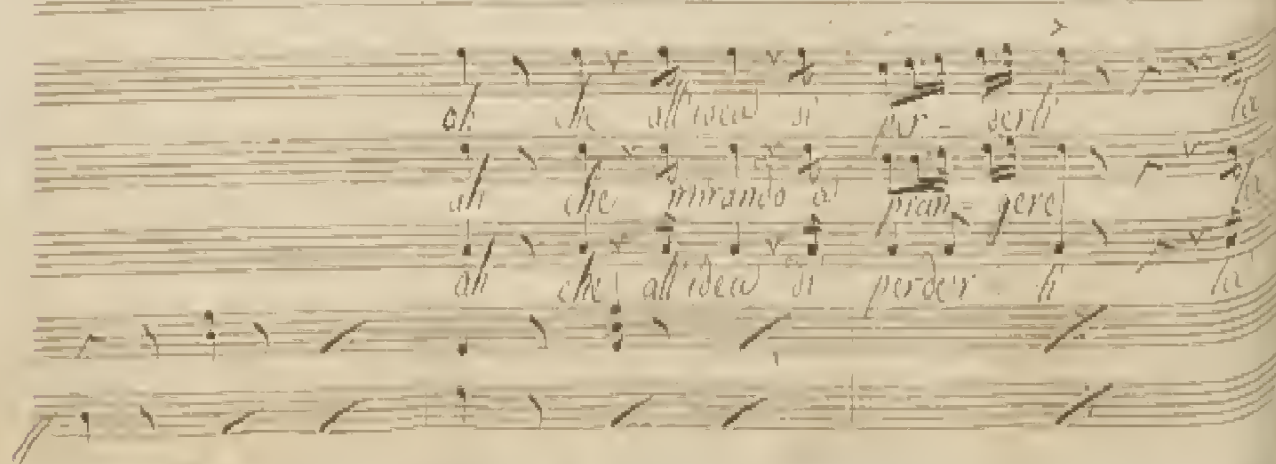 ah che all'idea di per - derli la
ah che mirando a' pian - gere la
ah che all'idea di perder - li la